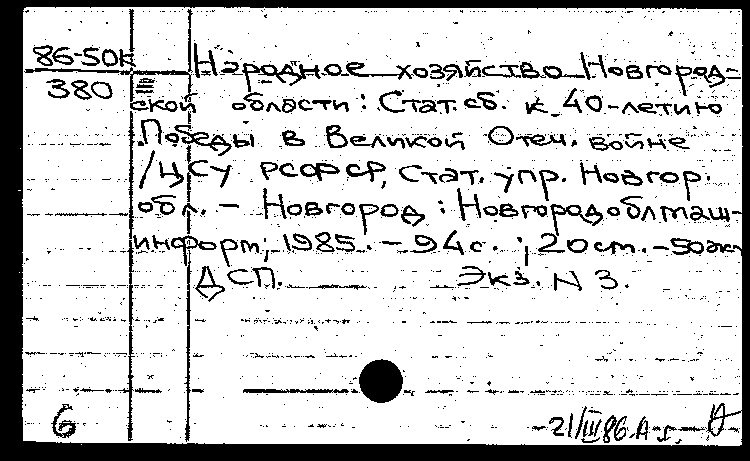 86-50к
380
Народное хозяйство Новгород-
ской области : Стат. сб. к 40-летию
Победы в Великой Отеч. войне
/ЦСУ РСФСР, Стат. упр. Новгор.
обл. – Новгород : Новгородоблмаш-
информ, 1985. – 94 с. ; 20 см. – 50 экз
ДСП. Экз. N 3.
6
21/III 86.